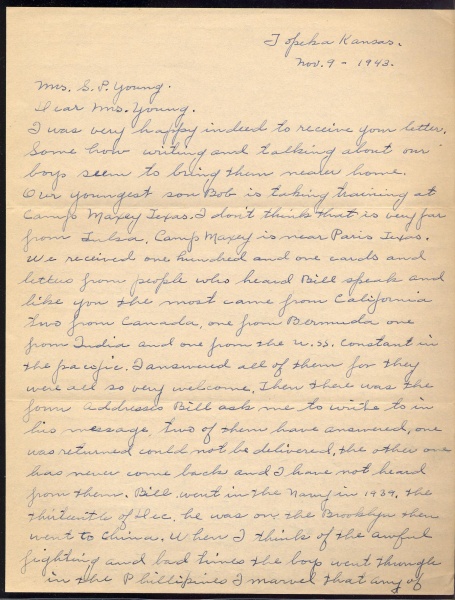 Topeka Kansas.
Nov. 9 - 1943.
Mrs. S. P. Young.
Dear Mrs. Young.
I was very happy indeed to receive your letter.
Some how writing and talking about our
boys seem to bring them nearer home.
Our youngest son Bob is taking training at
Camp Maxey Texas. I don't think that is very far
from Tulsa, Camp Maxey is near Paris Texas.
We received one hundred and one cards and
letters from people who heard Bill speak and
like you the most came from California
two from Canada, one from Bermuda one
from India and one from the U.S.S. Constant in
the pacific. I answered all of them for they
were all so very welcome. Then there was the
four addresses Bill ask me to write to in
his message, two of them have answered, one
was returned could not be delivered, the other one
has never come back and I have not heard
from them. Bill went in the Navy in 1939, the
thirteenth of Dec. he was on the Brooklyn then
went to China. When I think of the awful
fighting and bad times the boys went through
in the Phillipines I marvel that any of